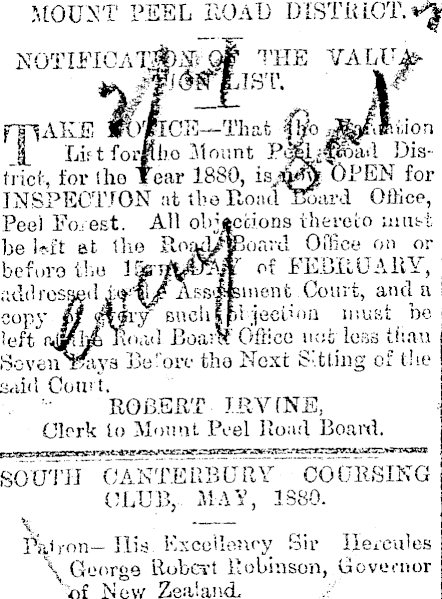 MOUNT PEEL ROAD DISTRICT.
NOTIFICATION OF THE VALUA-
TION LIST.
TAKE NOTICE—That the Valuation
List for the Mount Peel Road Dis-
trict, for the Year 1880, is now OPEN for
INSPECTION at the Road Board Office,
Peel Forest. All objections thereto must
be left at the Road Board Office on or
before the DAY of FEBRUARY,
addressed to the Assessment Court, and a
copy of every such objection must be
left at the Road Board Office not less than
Seven Days Before the Next Sitting of the
said Court.
ROBERT IRVINE,
Clerk to Mount Peel Road Board.
SOUTH CANTERBURY COURSING
CLUB, MAY, 1880.
Patron— His Excellency Sir Hercules
George Robert Robinson, Governor
of New Zealand.